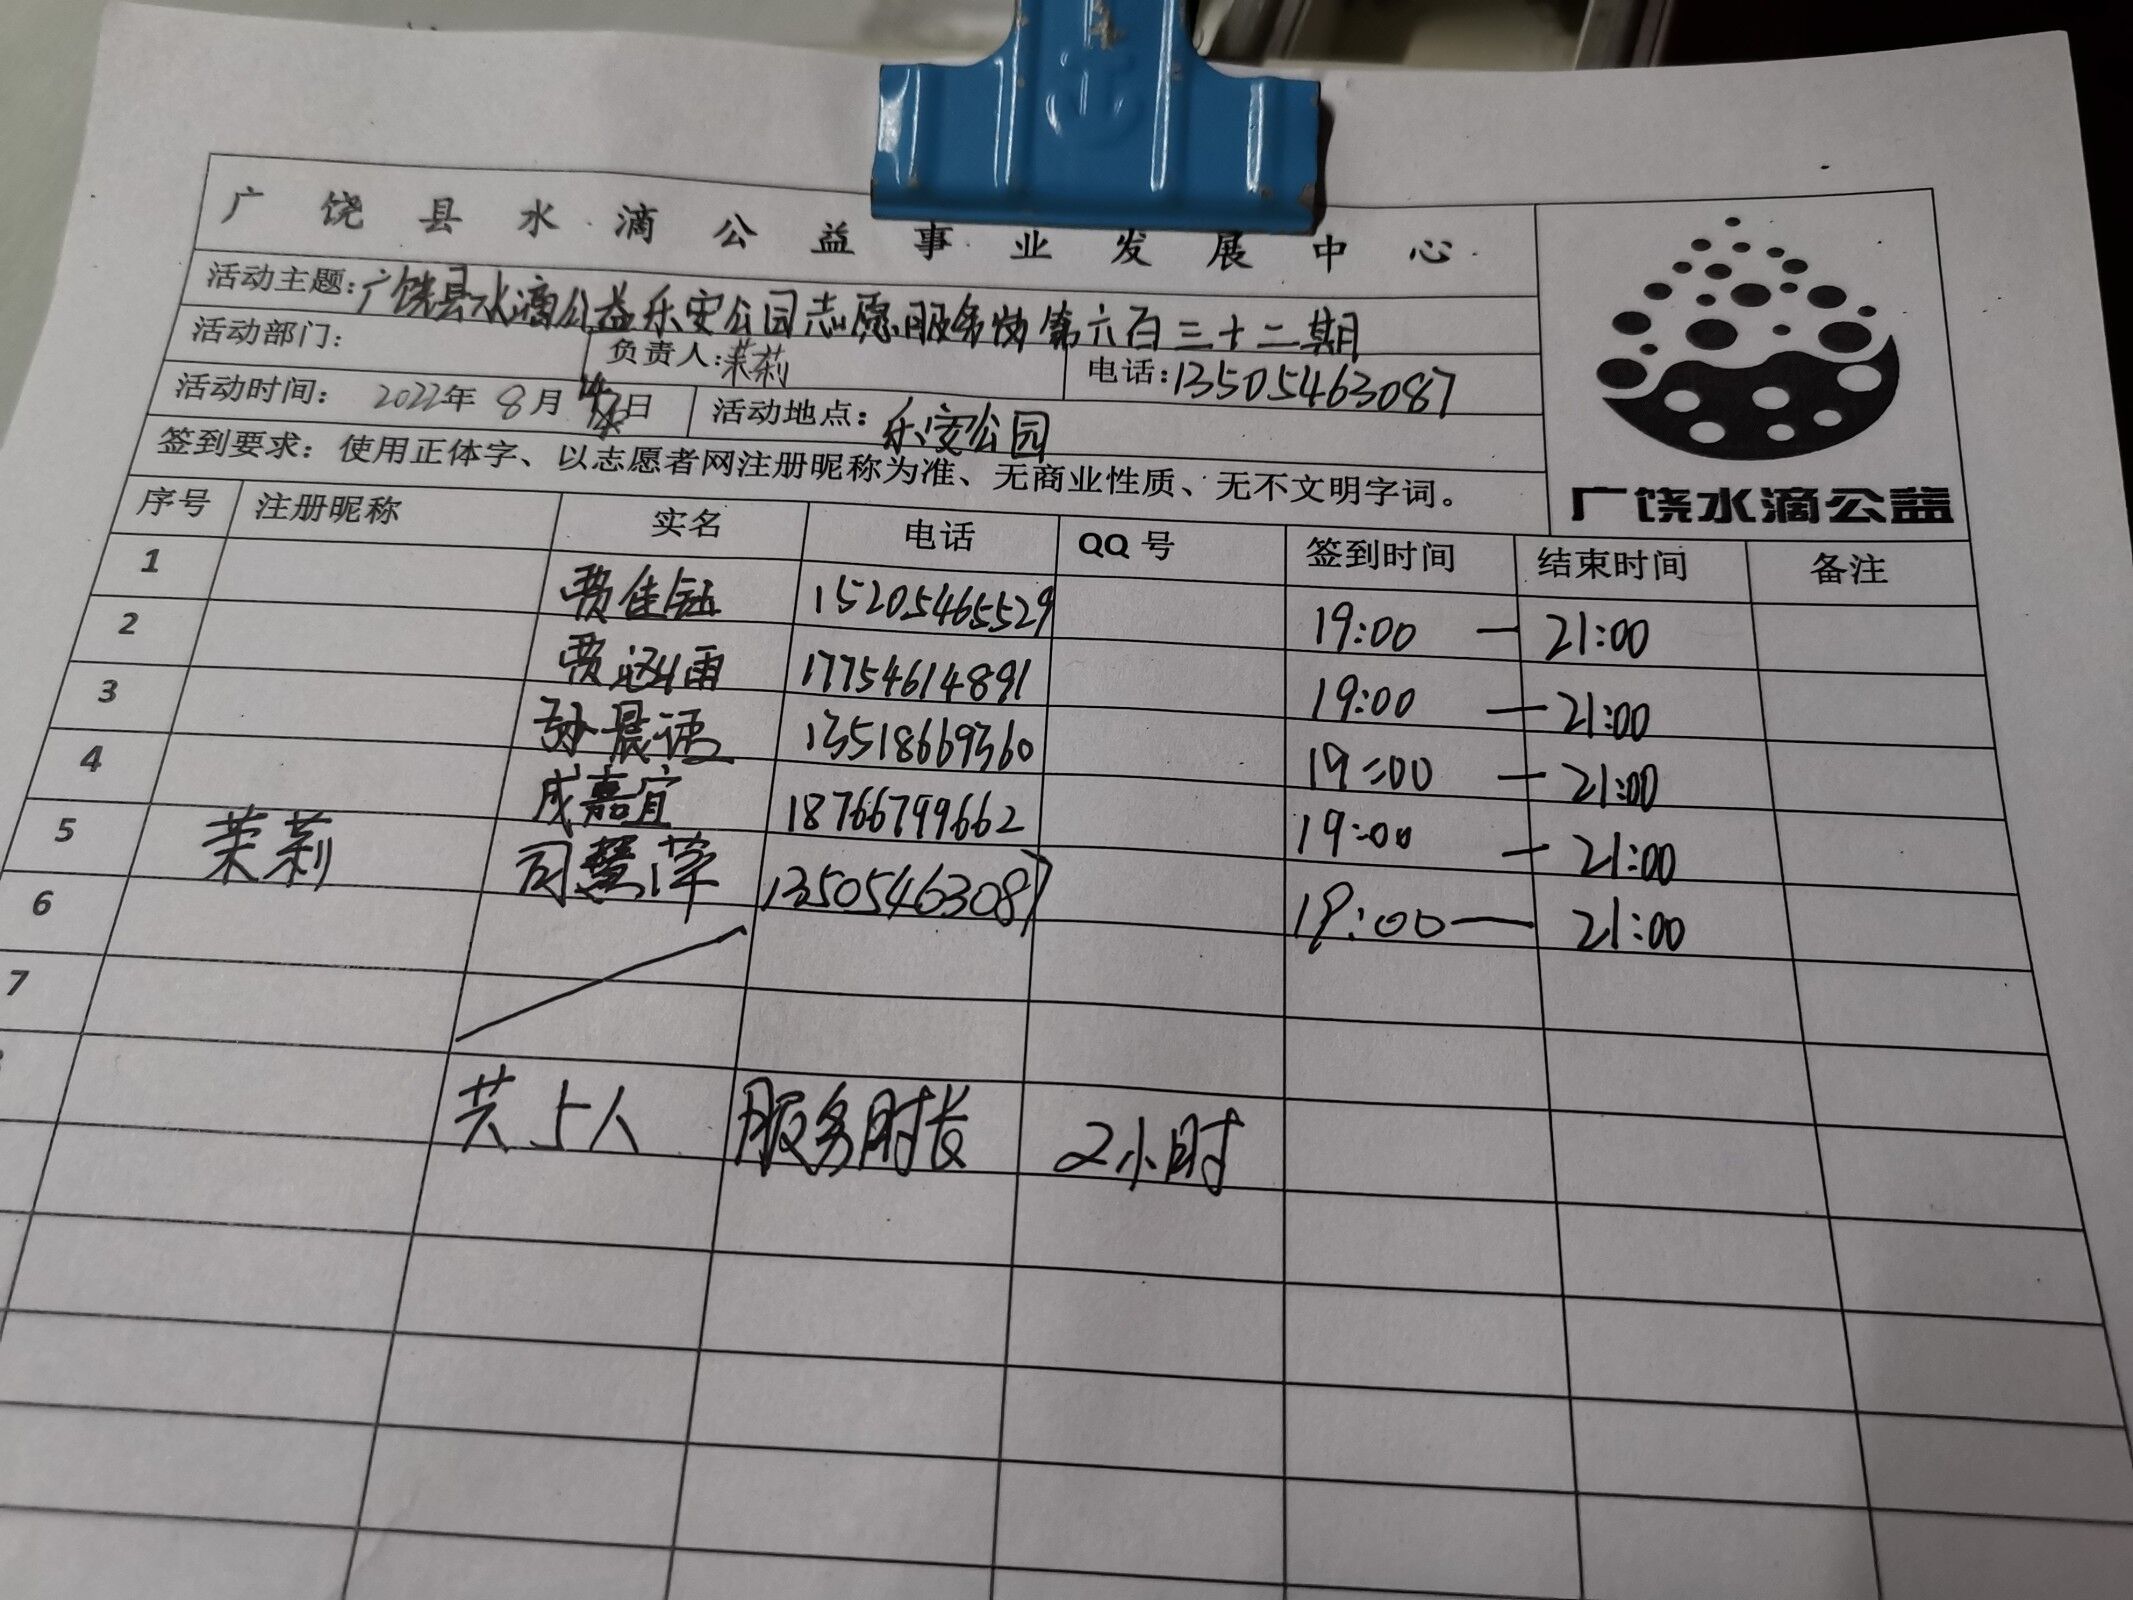 广饶县水滴公益事业发展中心
活动主题:广饶县水滴公益乐安公园志愿服务岗第六百三十二期
活动部门: 负责人:茉莉 电话:13505463087
活动时间: 2022年 8月 日 活动地点: 乐安公园
签到要求:使用正体字、以志愿者网注册昵称为准、无商业性质、无不文明字词。
广饶水滴公益
序号 注册昵称 实名 电话 QQ号 签到时间 结束时间 备注
1 贾佳钰 15205465529 19:00 — 21:00
2 贾 雨 17754614891 19:00 — 21:00
3 孙晨语 13518669360 19:00 — 21:00
4 成嘉宜 18766799662 19:00 — 21:00
5 茉莉 司慧萍 13505463087 19:00 — 21:00
6
7
共5人 服务时长 2小时